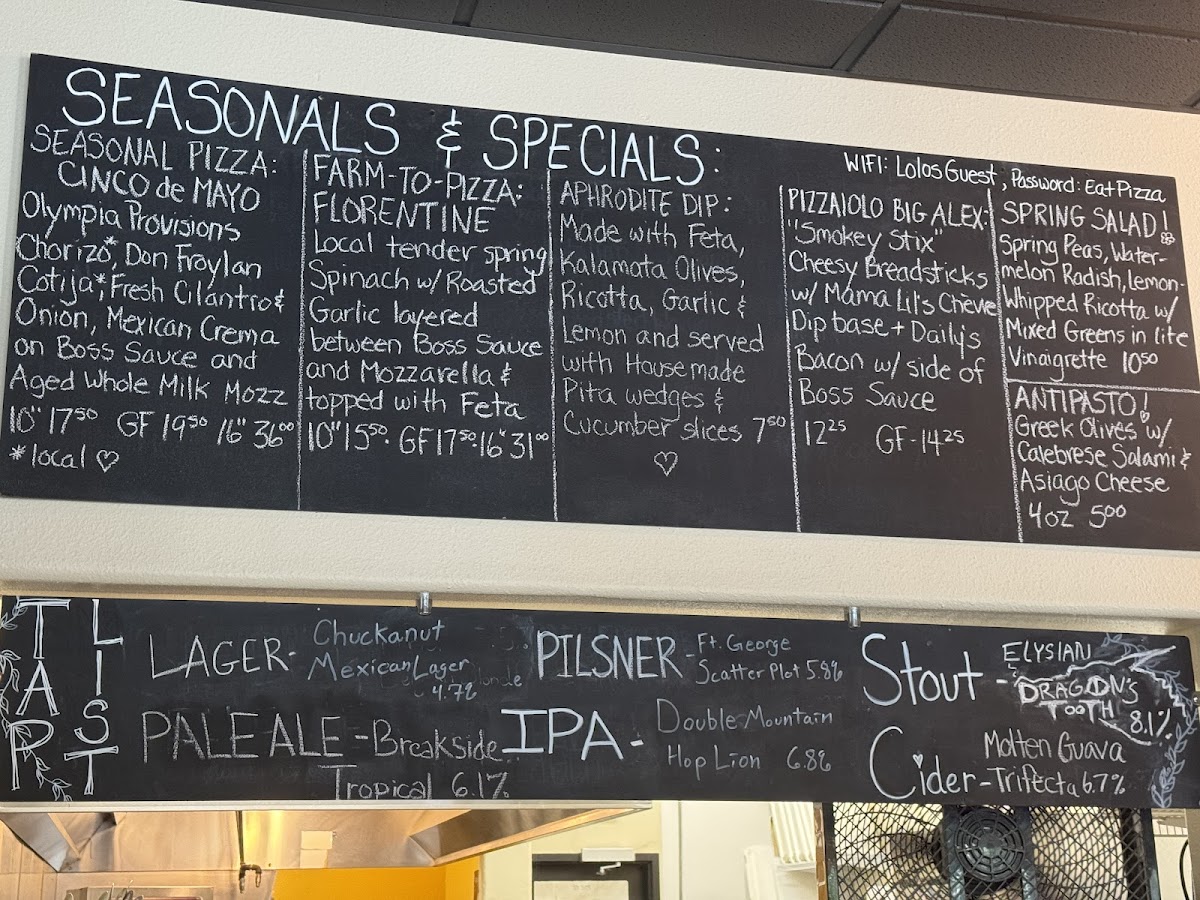 SEASONALS & SPECIALS:
WIFI: Lolos Guest, Password: Eat Pizza
SEASONAL PIZZA:
CINCO de MAYO
Olympia Provisions
Chorizo*, Don Froylan
Cotija*, Fresh Cilantro &
Onion, Mexican Crema
on Boss Sauce and
Aged Whole Milk Mozz
10" 17⁵⁰ GF 19⁵⁰ 16" 36⁰⁰
*local ♡
FARM-TO-PIZZA:
FLORENTINE
Local tender spring
Spinach w/ Roasted
Garlic layered
between Boss Sauce
and Mozzarella &
topped with Feta
10" 15⁵⁰ · GF 17⁵⁰ · 16" 31⁰⁰
APHRODITE DIP:
Made with Feta,
Kalamata Olives,
Ricotta, Garlic &
Lemon and served
with Housemade
Pita wedges &
Cucumber slices 7⁵⁰
♡
PIZZAIOLO BIG ALEX:
"Smokey Stix"
Cheesy Breadsticks
w/ Mama Lil's Chèvre
Dip base + Daily's
Bacon w/ side of
Boss Sauce
12²⁵ GF-14²⁵
SPRING SALAD!
Spring Peas, Water-
melon Radish, lemon-
Whipped Ricotta w/
Mixed Greens in lite
Vinaigrette 10⁵⁰
ANTIPASTO!
Greek Olives w/
Calebrese Salami &
Asiago Cheese
4oz 5⁰⁰
TAP
LIST
LAGER- Chuckanut
Mexican Lager
4.7%
PILSNER- Ft. George
Scatter Plot 5.8%
Stout - ELYSIAN
DRAGON'S
TOOTH 8.1%
PALE ALE - Breakside
Tropical 6.1%
IPA - Double Mountain
Hop Lion 6.8%
Cider - Molten Guava
Trifecta 6.7%